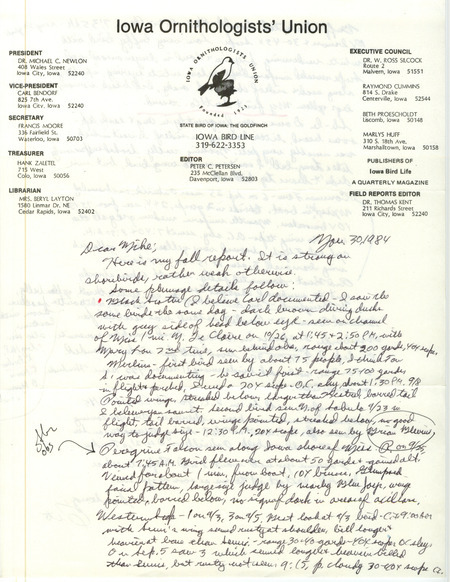 Iowa Ornithologists' Union
PRESIDENT
DR. MICHAEL C. NEWLON
408 Wales Street
Iowa City, Iowa 52240
VICE-PRESIDENT
CARL BENDORF
825 7th Ave.
Iowa City, Iowa 52240
SECRETARY
FRANCIS MOORE
336 Fairfield St.
Waterloo, Iowa 50703
TREASURER
HANK ZALETEL
715 West
Colo, Iowa 50056
LIBRARIAN
MRS. BERYL LAYTON
1560 Linmar Dr. NE
Cedar Rapids, Iowa 52402
IOWA ORNITHOLOGISTS UNION
Founded 1923
STATE BIRD OF IOWA: THE GOLDFINCH
IOWA BIRD LINE
319-622-3353
EDITOR
PETER C. PETERSEN
235 McClellan Blvd.
Davenport, Iowa 52803
EXECUTIVE COUNCIL
DR. W. ROSS SILCOCK
Route 2
Malvern, Iowa 51551
RAYMOND CUMMINS
814 S. Drake
Centerville, Iowa 52544
BETH PROESCHOLDT
Liscomb, Iowa 50148
MARLYS HUFF
310 S. 18th Ave.
Marshalltown, Iowa 50158
PUBLISHERS OF
Iowa Bird Life
A QUARTERLY MAGAZINE
FIELD REPORTS EDITOR
DR. THOMAS KENT
211 Richards Street
Iowa City, Iowa 52240
Nov. 30, 1984
Dear Mike:
Here is my fall report. It is strong on
shorebirds, rather weak otherwise.
Some plumage details follow:
Black Scoter (I believe Carl documented - I saw the
same birds the same day - dark brown diving ducks
with gray sides of head below eye - seen on channel
of Miss. 1 mi N. Le Claire on 10/26 at 1:45 & 2:50 P.M. with
Mary Lou 2nd time, sun behind also, range about 300 yards, 40X scope,
Merlin - first bird seen by about 75 people, I think Tom
K. was documenting - he saw it first - range 75-100 yards
in flight & perched, I used a 20X scope - O.C. sky about 1:30 P.M. 9/8
Pointed wings, streaked below, larger than Kestrel, barred tail
flight tail barred, wings pointed, streaked below, no good
way to judge size - 12:30 P.M., 20X scope, also seen by Brian Blevins
Peregrine Falcon seen along Iowa shore of Miss. on 9/25,
about 7:45 A.M. Bird flew over at about 50 yards
Viewed for about 1 min. from boat, 10X binocs,
facial pattern, large size judge by nearby Blue Jays, wings
pointed, barred below, no sign of dark in area of axillars,
Western Sandp - 1 on 4/3, 3 on 9/5. Best look at 4/3 bird
with binoc's wing sound rusty at shoulder, bill longer
heavier at base than semis - range 30-40 yards - 40X scope, O.C. sky
On Sep. 5 saw 3 which seemed longer & heavier billed
than semis, but rusty not seen, p. cloudy 30-40X scope